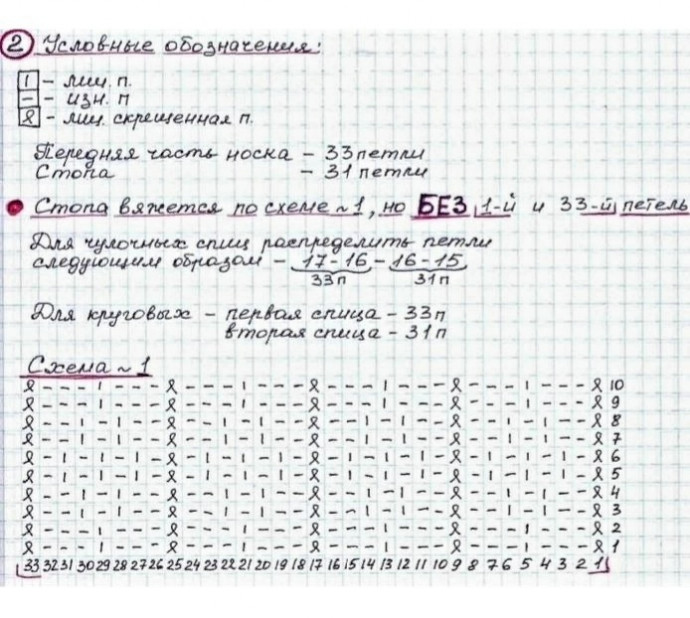 ② Условные обозначения:
I - лиц. п.
– - изн. п
ℓ - лиц. скрещенная п.
Передняя часть носка – 33 петли
Стопа – 31 петли
• Стопа вяжется по схеме ~1, но БЕЗ 1-й и 33-й петель
Для чулочных спиц распределить петли
следующим образом – 17-16 – 16-15
33п 31п
Для круговых – первая спица – 33п
вторая спица – 31п
Схема ~1
ℓ - - - I - - - ℓ - - - I - - - ℓ - - - I - - - ℓ - - - I - - - ℓ 10
ℓ - - - I - - - ℓ - - - I - - - ℓ - - - I - - - ℓ - - - I - - - ℓ 9
ℓ - - I - I - - ℓ - - I - I - - ℓ - - I - I - - ℓ - - I - I - - ℓ 8
ℓ - - I - I - - ℓ - - I - I - - ℓ - - I - I - - ℓ - - I - I - - ℓ 7
ℓ - I - I - I - ℓ - I - I - I - ℓ - I - I - I - ℓ - I - I - I - ℓ 6
ℓ - I - I - I - ℓ - I - I - I - ℓ - I - I - I - ℓ - I - I - I - ℓ 5
ℓ - - I - I - - ℓ - - I - I - - ℓ - - I - I - - ℓ - - I - I - - ℓ 4
ℓ - - I - I - - ℓ - - I - I - - ℓ - - I - I - - ℓ - - I - I - - ℓ 3
ℓ - - - I - - - ℓ - - - I - - - ℓ - - - I - - - ℓ - - - I - - - ℓ 2
ℓ - - - I - - - ℓ - - - I - - - ℓ - - - I - - - ℓ - - - I - - - ℓ 1
33 32 31 30 29 28 27 26 25 24 23 22 21 20 19 18 17 16 15 14 13 12 11 10 9 8 7 6 5 4 3 2 1